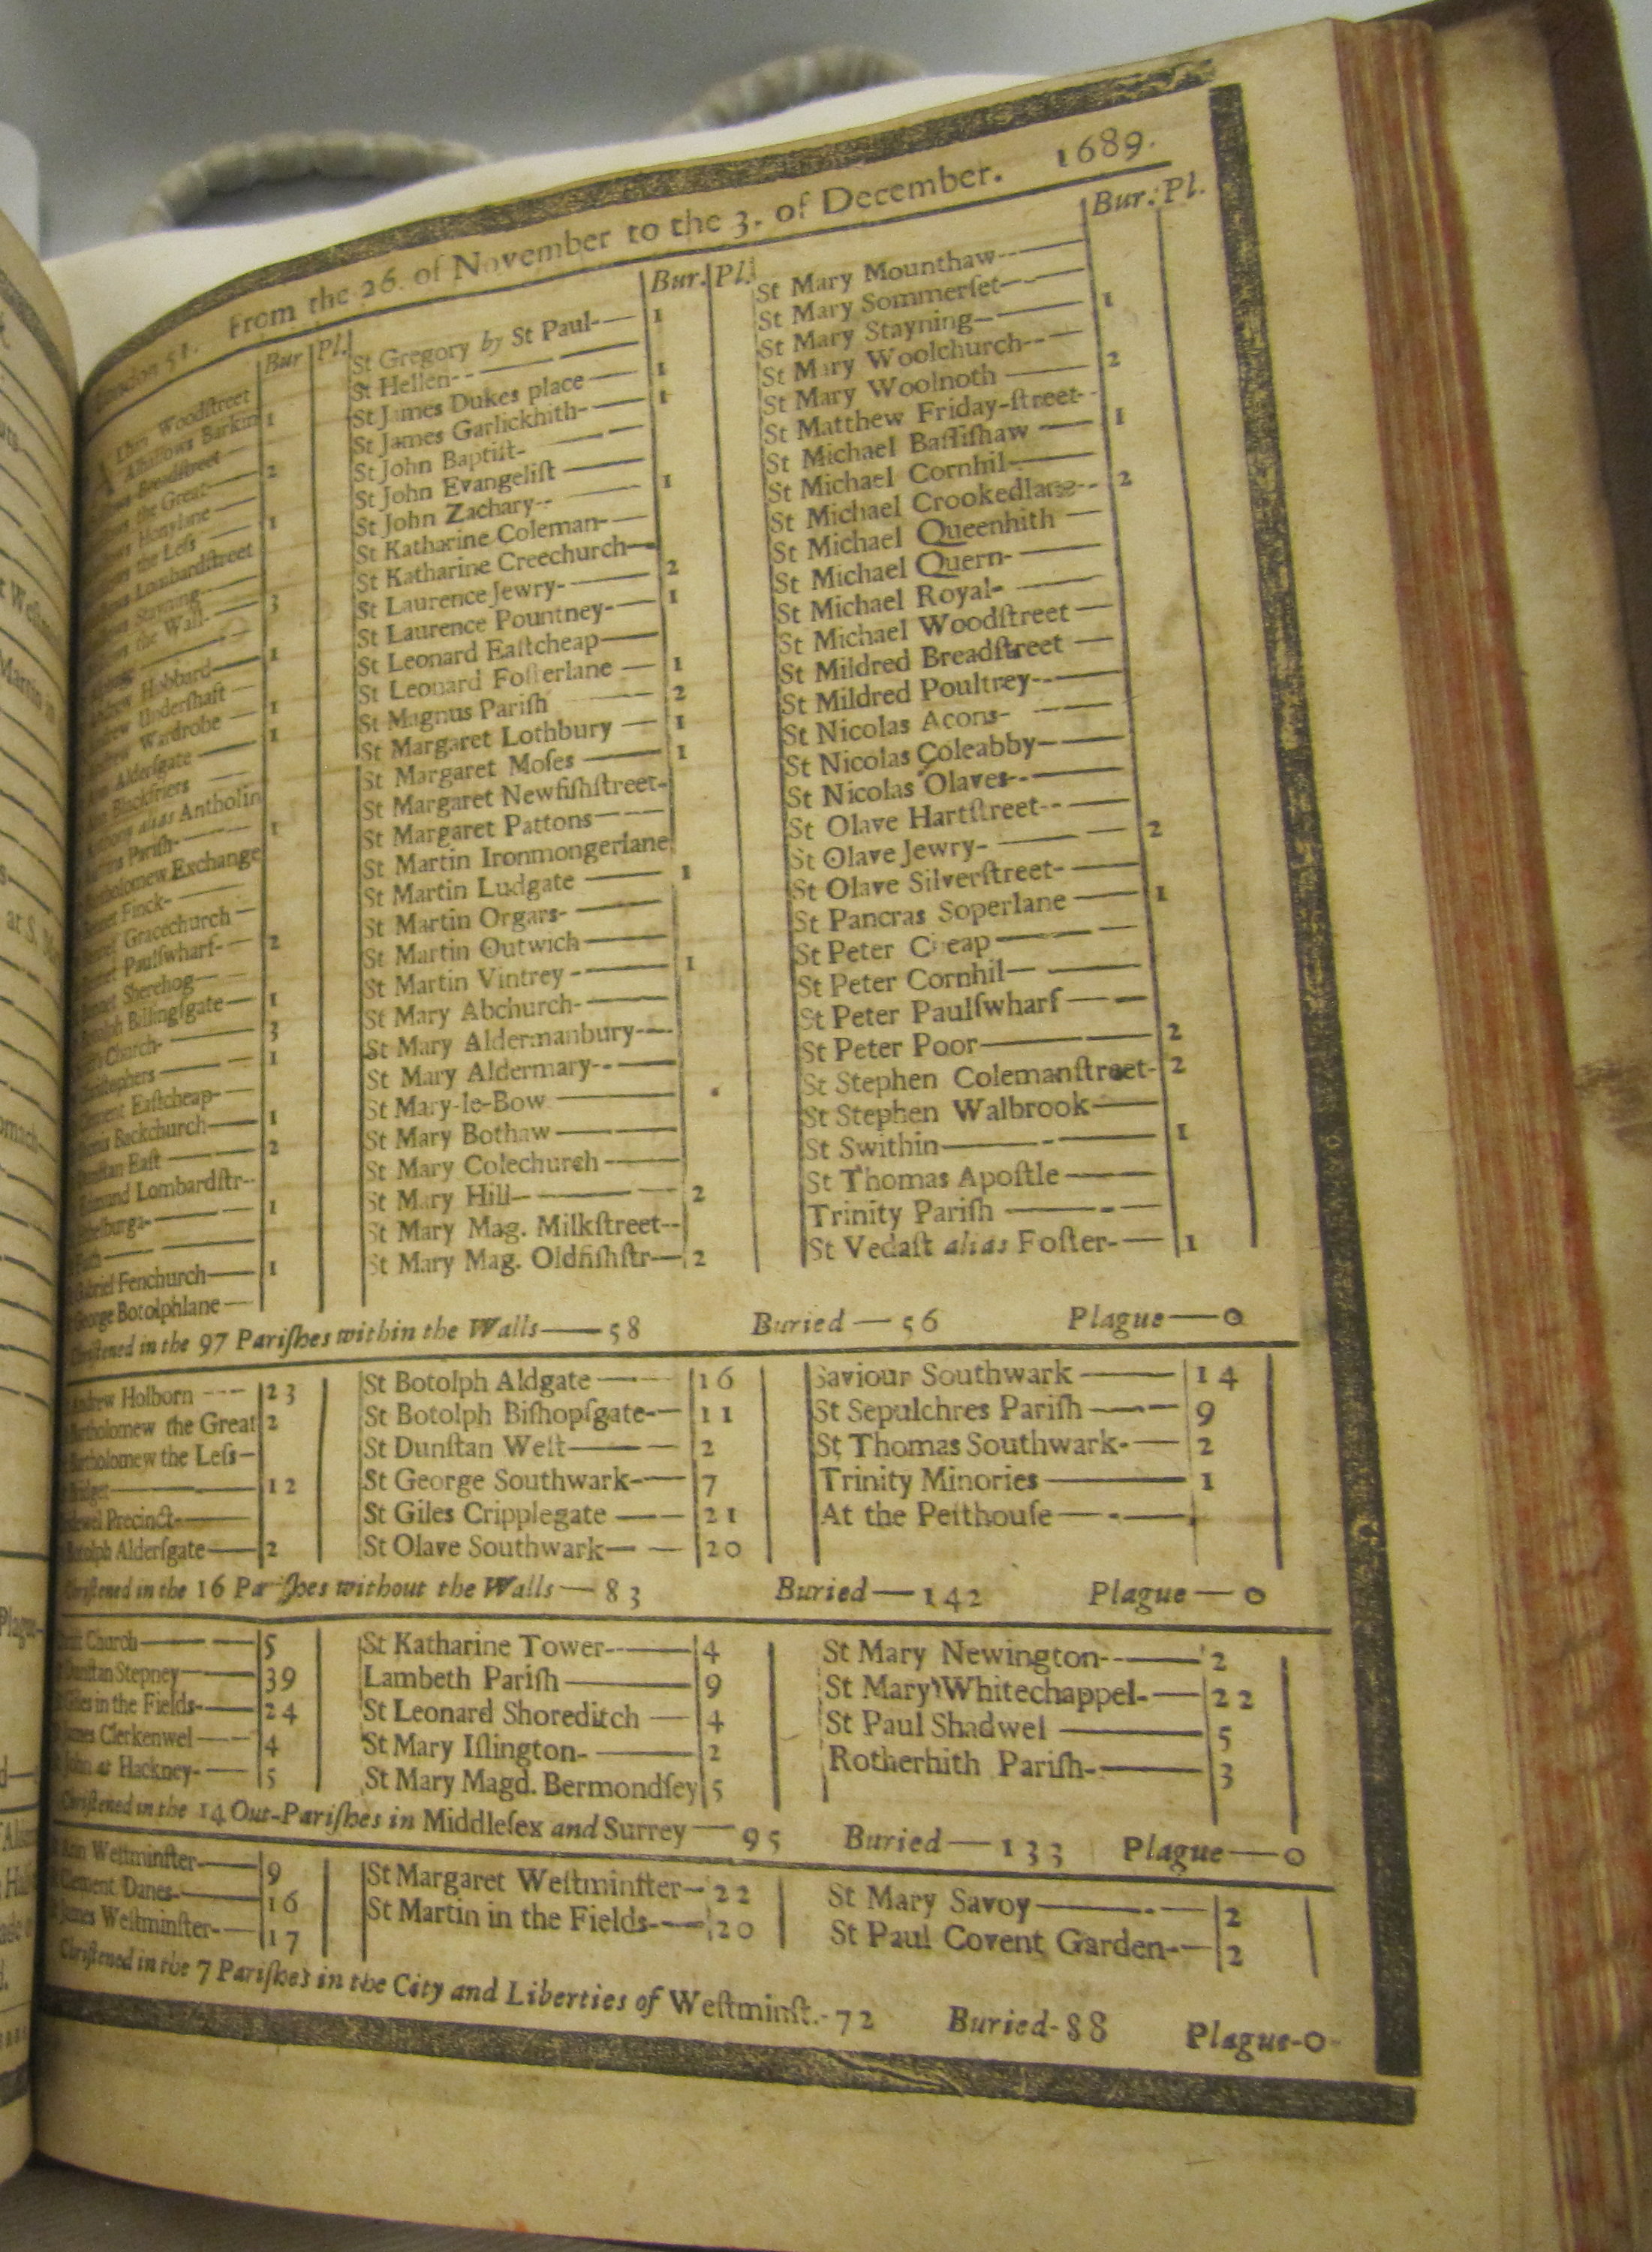 London 51. From the 26. of November to the 3. of December. 1689.
Bur Pl.
Alban Woodſtreet
Alhallows Barkin 1
Breadſtreet
the Great 2
Honylane
the Leſs 1
Lombardſtreet
Stayning
the Wall 3
Hubbard 1
Underſhaft
Wardrobe 1
Alderſgate 1
Blackfriers
alias Antholin
Pariſh 1
Bartholomew Exchange
Finck
Gracechurch
Paulſwharf 2
Sherehog
Billingſgate 1
Church 3
Chriſtophers 1
Clement Eaſtcheap
Backchurch 1
Dunſtan Eaſt 2
Edmund Lombardſtr
Ethelburga 1
Faith
Gabriel Fenchurch 1
George Botolphlane
Bur. Pl.
St Gregory by St Paul 1
St Hellen
St James Dukes place 1
St James Garlickhith 1
St John Baptiſt
St John Evangeliſt
St John Zachary 1
St Katharine Coleman
St Katharine Creechurch
St Laurence Jewry 2
St Laurence Pountney 1
St Leonard Eaſtcheap
St Leonard Foſterlane 1
St Magnus Pariſh 2
St Margaret Lothbury 1
St Margaret Moſes 1
St Margaret Newfiſhſtreet
St Margaret Pattons
St Martin Ironmongerlane
St Martin Ludgate 1
St Martin Orgars
St Martin Outwich
St Martin Vintrey 1
St Mary Abchurch
St Mary Aldermanbury
St Mary Aldermary
St Mary-le-Bow
St Mary Bothaw
St Mary Colechurch
St Mary Hill 2
St Mary Mag. Milkſtreet
St Mary Mag. Oldfiſhſtr 2
Bur. Pl.
St Mary Mounthaw
St Mary Sommerſet
St Mary Stayning 1
St Mary Woolchurch
St Mary Woolnoth 2
St Matthew Friday-ſtreet
St Michael Baſſiſhaw 1
St Michael Cornhil
St Michael Crookedlane 2
St Michael Queenhith
St Michael Quern
St Michael Royal
St Michael Woodſtreet
St Mildred Breadſtreet
St Mildred Poultrey
St Nicolas Acons
St Nicolas Coleabby
St Nicolas Olaves
St Olave Hartſtreet
St Olave Jewry 2
St Olave Silverſtreet
St Pancras Soperlane 1
St Peter Cheap
St Peter Cornhil
St Peter Paulſwharf
St Peter Poor 2
St Stephen Colemanſtreet 2
St Stephen Walbrook
St Swithin 1
St Thomas Apoſtle
Trinity Pariſh
St Vedaſt alias Foſter 1
Chriſtened in the 97 Pariſhes within the Walls—58 Buried—56 Plague—0
Andrew Holborn 23
Bartholomew the Great 2
Bartholomew the Leſs
Bridget 12
Bridewel Precinct
Botolph Alderſgate 2
St Botolph Aldgate 16
St Botolph Biſhopſgate 11
St Dunſtan Weſt 2
St George Southwark 7
St Giles Cripplegate 21
St Olave Southwark 20
Saviour Southwark 14
St Sepulchres Pariſh 9
St Thomas Southwark 2
Trinity Minories 1
At the Peſthouſe
Chriſtened in the 16 Pariſhes without the Walls—83 Buried—142 Plague—0
Chriſt Church 5
Dunſtan Stepney 39
Giles in the Fields 24
James Clerkenwel 4
John at Hackney 5
St Katharine Tower 4
Lambeth Pariſh 9
St Leonard Shoreditch 4
St Mary Iſlington 2
St Mary Magd. Bermondſey 5
St Mary Newington 2
St Mary Whitechappel 22
St Paul Shadwel 5
Rotherhith Pariſh 3
Chriſtened in the 14 Out-Pariſhes in Middleſex and Surrey—95 Buried—133 Plague—0
Ann Weſtminſter 9
Clement Danes 16
James Weſtminſter 17
St Margaret Weſtminſter 22
St Martin in the Fields 20
St Mary Savoy 2
St Paul Covent Garden 2
Chriſtened in the 7 Pariſhes in the City and Liberties of Weſtminſt.-72 Buried-88 Plague-0